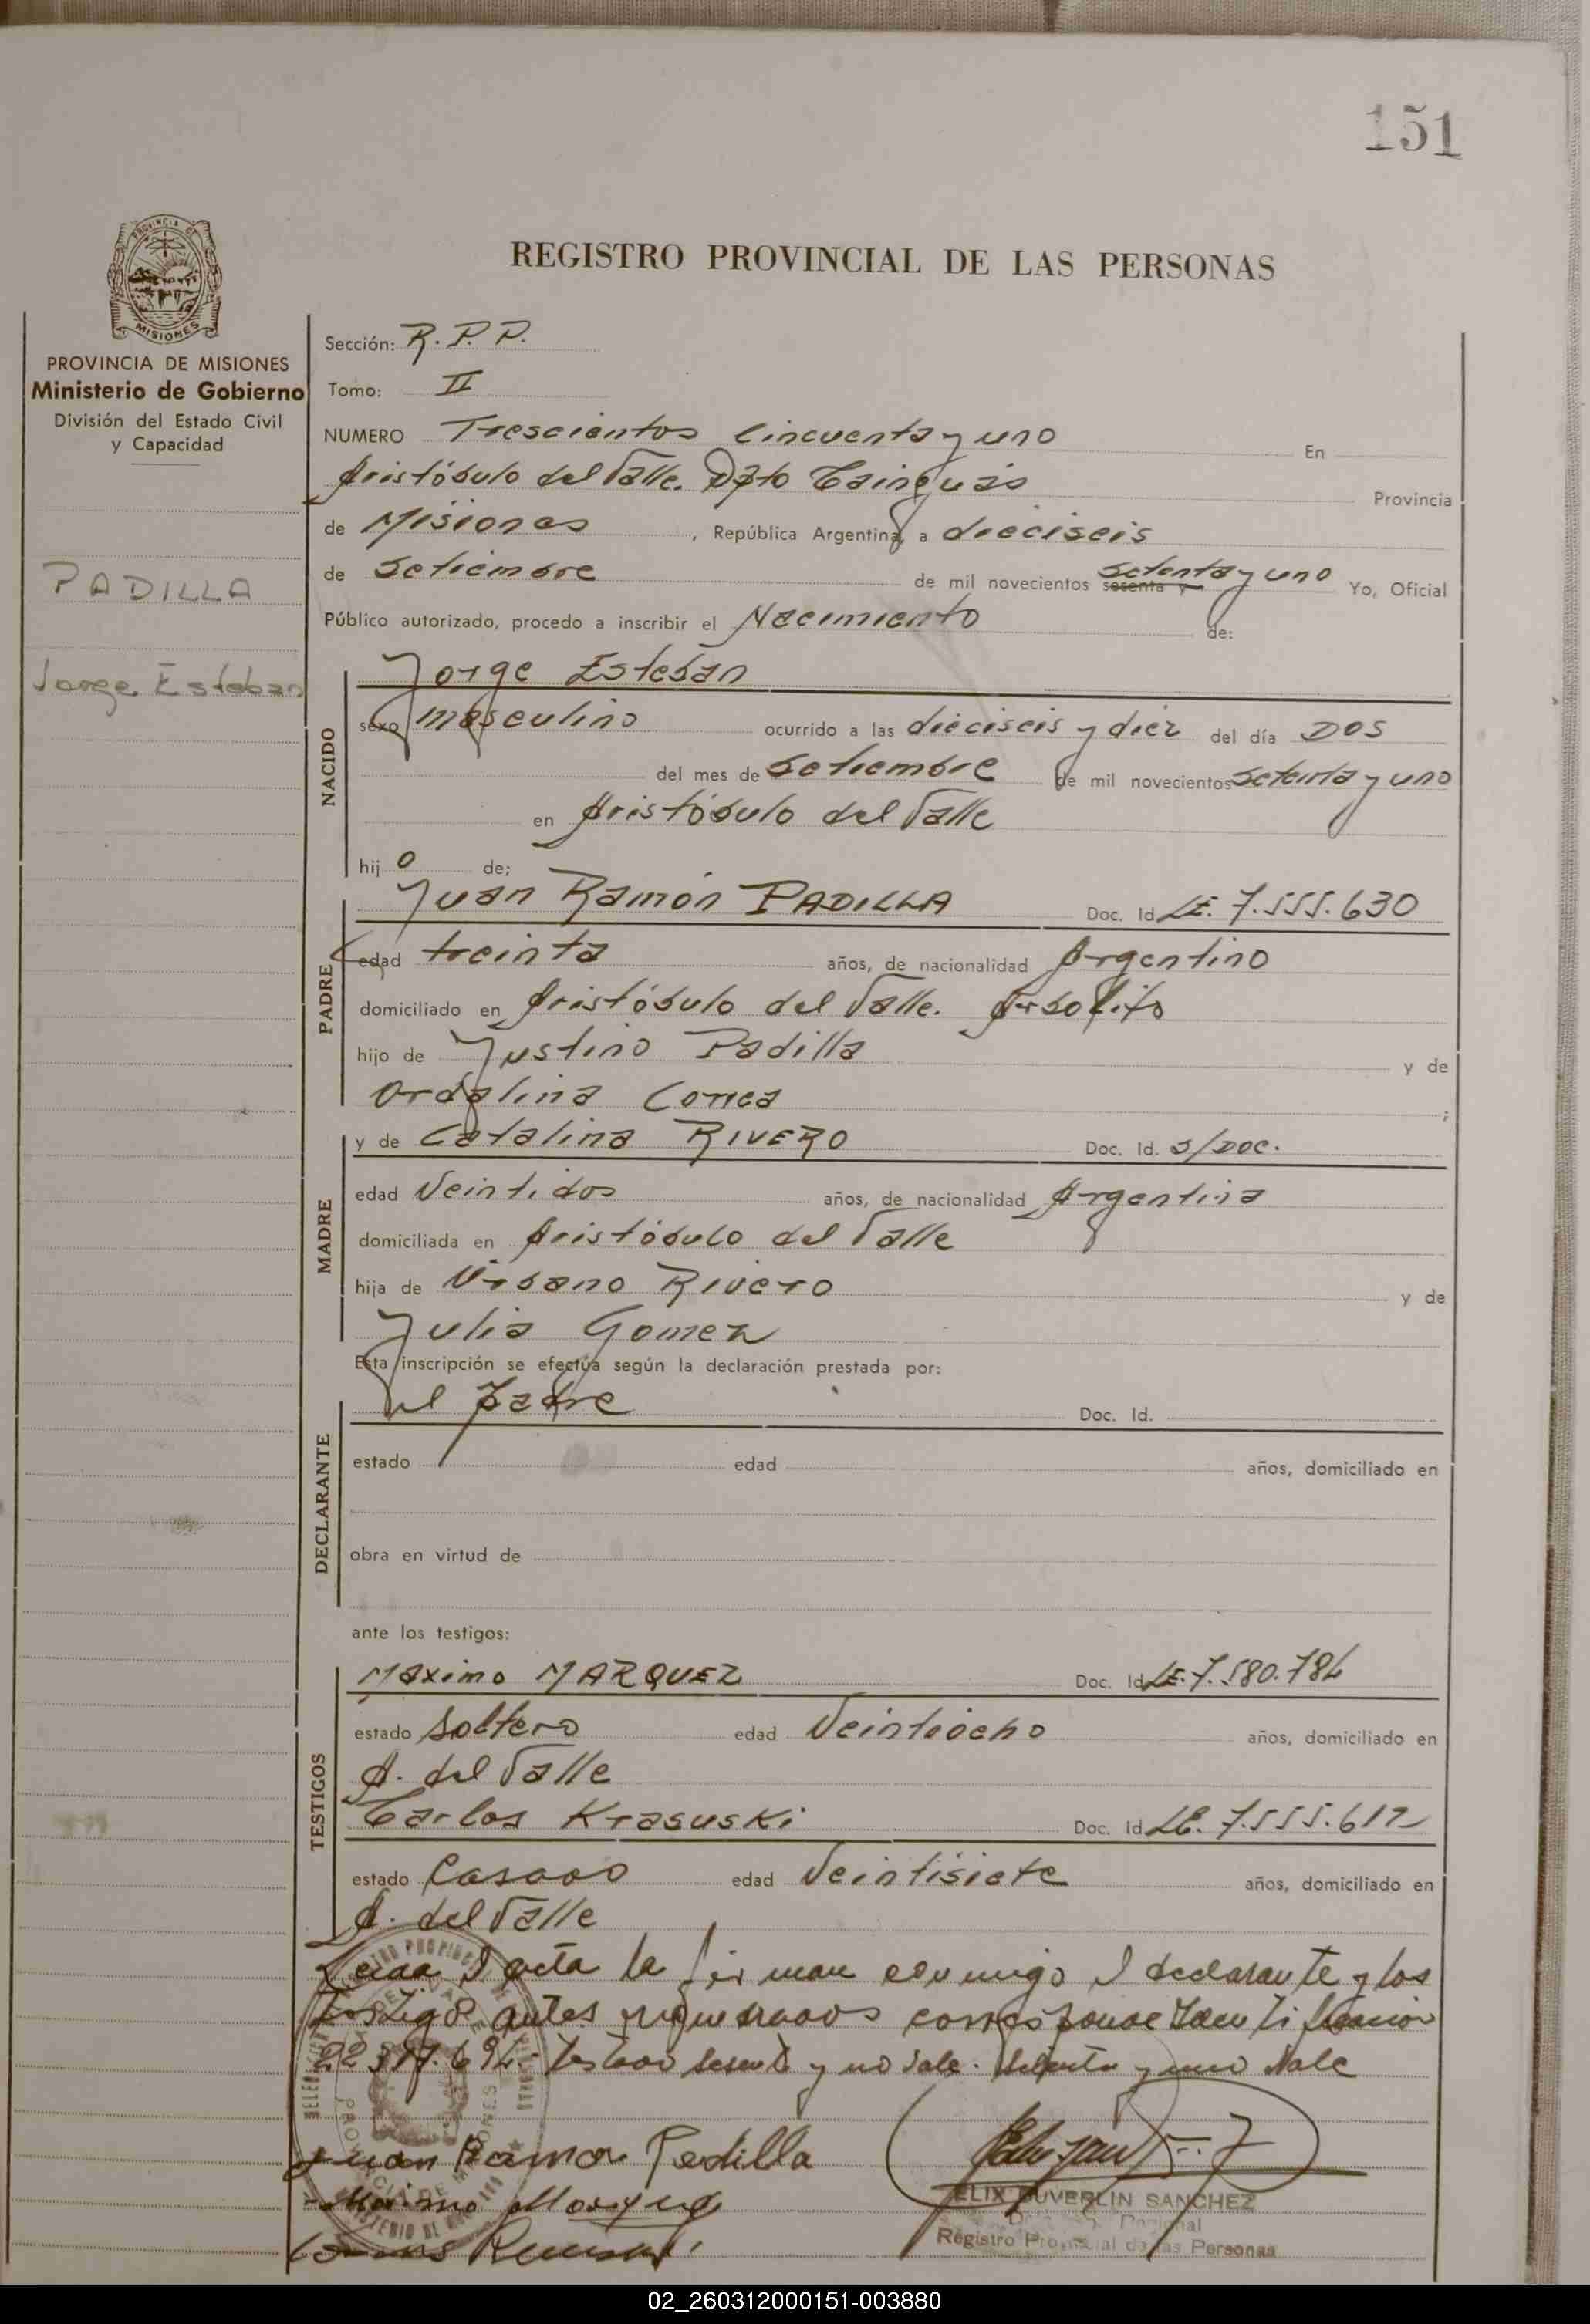 151
PROVINCIA DE MISIONES
REGISTRO PROVINCIAL DE LAS PERSONAS
PROVINCIA DE MISIONES
Ministerio de Gobierno
División del Estado Civil
y Capacidad
PADILLA
Jorge Esteban
Sección: R. P. P.
Tomo: II
NUMERO Trescientos Cincuenta y uno En
Aristóbulo del Valle. Dpto Cainguás Provincia
de Misiones, República Argentina, a dieciseis
de Setiembre de mil novecientos sesenta y Setenta y uno Yo, Oficial
Público autorizado, procedo a inscribir el Nacimiento de:
NACIDO
Jorge Esteban
sexo masculino ocurrido a las dieciseis y diez del día DOS
del mes de Setiembre de mil novecientos setenta y uno
en Aristóbulo del Valle
hij o de;
PADRE
Juan Ramón PADILLA Doc. Id. LE. 7.555.630
edad treinta años, de nacionalidad Argentino
domiciliado en Aristóbulo del Valle. Arbolito
hijo de Justino Padilla y de
Ordalina Correa ;
MADRE
y de Catalina RIVERO Doc. Id. S/Doc.
edad Veintidos años, de nacionalidad Argentina
domiciliada en Aristóbulo del Valle
hija de Urbano Rivero y de
Julia Gomez
Esta inscripción se efectúa según la declaración prestada por:
DECLARANTE
el padre Doc. Id.
estado edad años, domiciliado en
obra en virtud de
ante los testigos:
TESTIGOS
Maximo MARQUEZ Doc. Id. LE. 7.580.784
estado soltero edad Veintiocho años, domiciliado en
A. del Valle
Carlos Krasuski Doc. Id. LE. 7.555.612
estado Casado edad Veintisiete años, domiciliado en
A. del Valle
Leida el acta la firman conmigo el declarante y los
testigos antes corresponde Identificacion
22.317.694. Testado sesenta y no vale. Setenta y uno Vale
Juan Ramon Padilla
Maximo Marquez
FELIX DUVERLIN SANCHEZ
Registro Provincial de las Personas
02_260312000151-003880